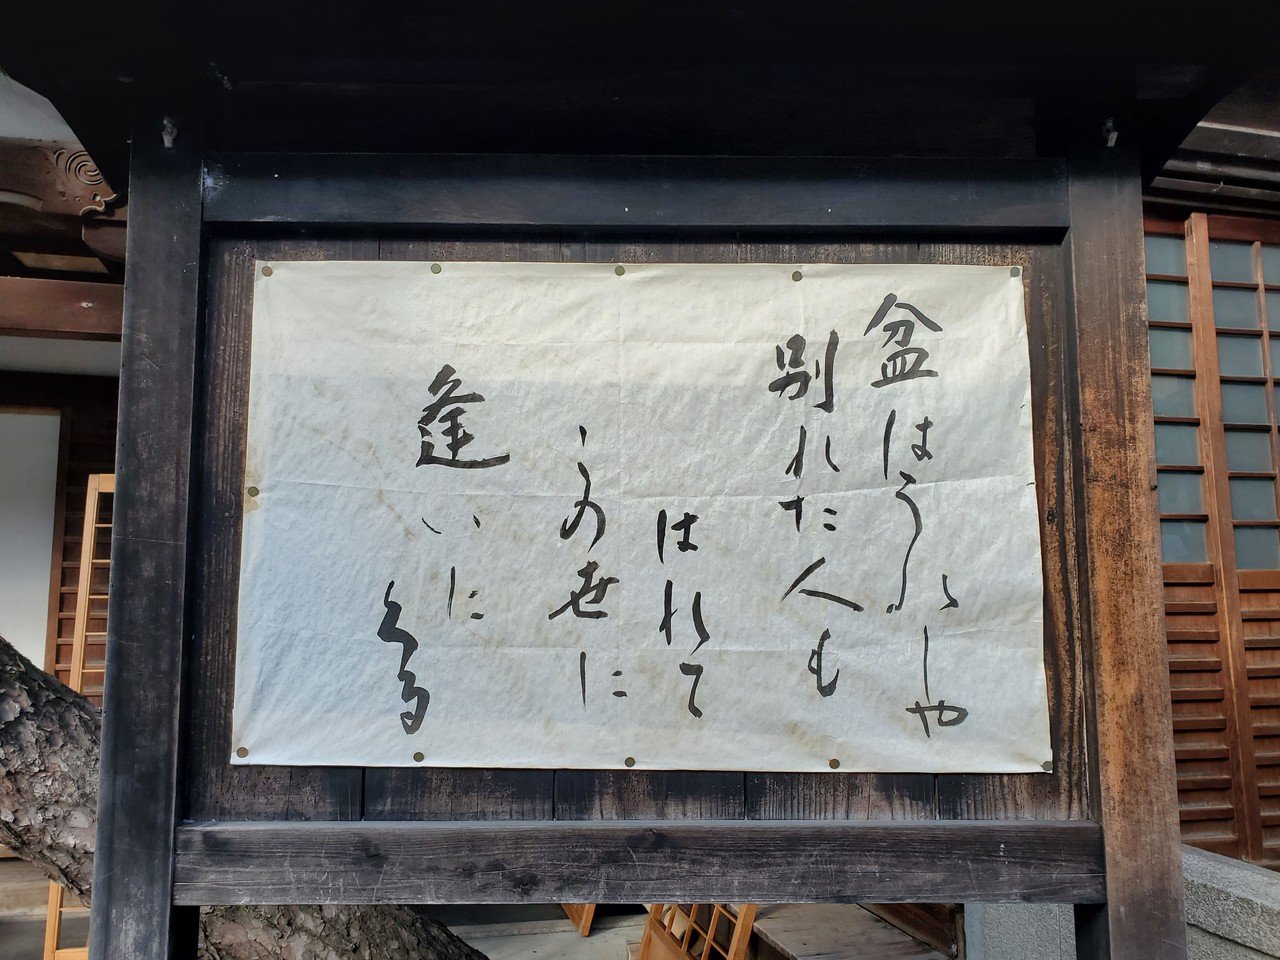 盆はうれしや
別れた人も
はれて
この世に
逢いにくる